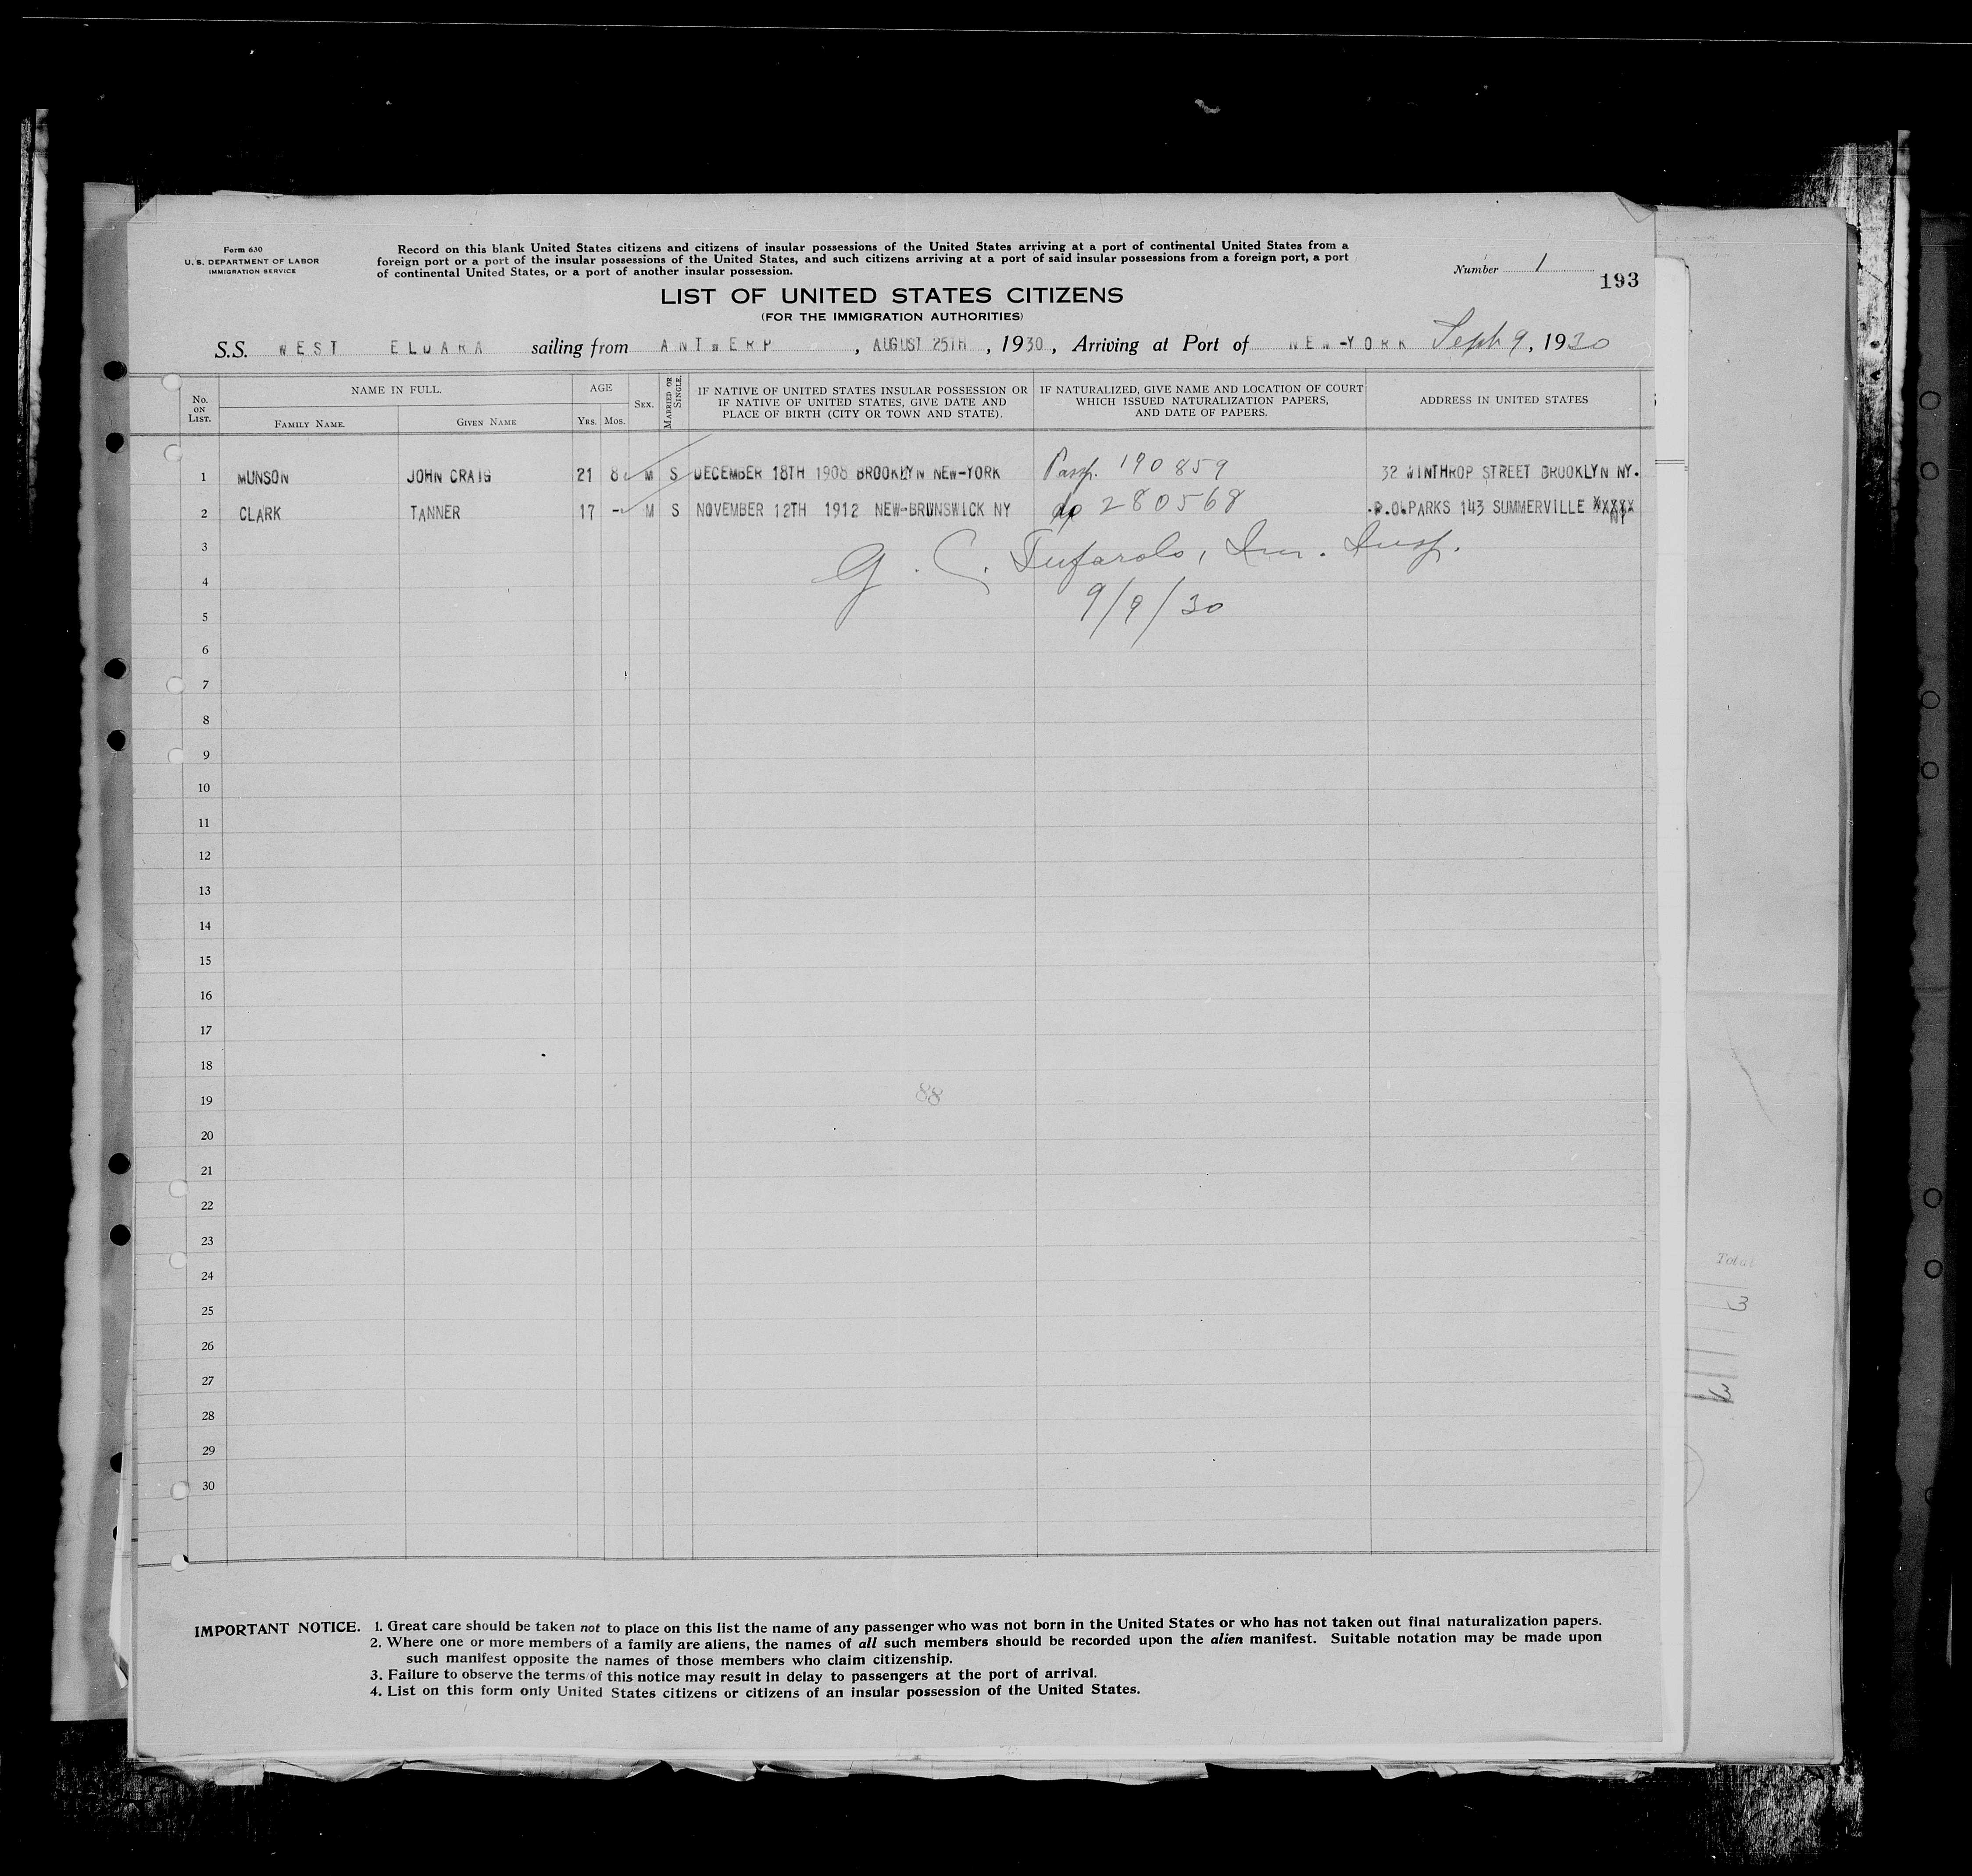 Form 630
U. S. DEPARTMENT OF LABOR
IMMIGRATION SERVICE
Record on this blank United States citizens and citizens of insular possessions of the United States arriving at a port of continental United States from a
foreign port or a port of the insular possessions of the United States, and such citizens arriving at a port of said insular possessions from a foreign port, a port
of continental United States, or a port of another insular possession.
Number 1
193
LIST OF UNITED STATES CITIZENS
(FOR THE IMMIGRATION AUTHORITIES)
S.S. WEST ELDARA sailing from ANTWERP, AUGUST 25TH, 1930, Arriving at Port of NEW-YORK Sept 9, 1930
No. ON LIST. NAME IN FULL. FAMILY NAME. GIVEN NAME AGE YRS. MOS. SEX. MARRIED OR SINGLE. IF NATIVE OF UNITED STATES INSULAR POSSESSION OR IF NATIVE OF UNITED STATES, GIVE DATE AND PLACE OF BIRTH (CITY OR TOWN AND STATE). IF NATURALIZED, GIVE NAME AND LOCATION OF COURT WHICH ISSUED NATURALIZATION PAPERS, AND DATE OF PAPERS. ADDRESS IN UNITED STATES
1 MUNSON JOHN CRAIG 21 8 M S DECEMBER 18TH 1908 BROOKLYN NEW-YORK Passp. 190859 32 WINTHROP STREET BROOKLYN NY.
2 CLARK TANNER 17 - M S NOVEMBER 12TH 1912 NEW-BRUNSWICK NY do 280568 PARKS 143 SUMMERVILLE XXXXX NY
3 G. C. Tufarolo, Im. Insp.
4
5 9/9/30
6
7
8
9
10
11
12
13
14
15
16
17
18
19 88
20
21
22
23
24
25
26
27
28
29
30
Total
3
3
IMPORTANT NOTICE. 1. Great care should be taken not to place on this list the name of any passenger who was not born in the United States or who has not taken out final naturalization papers.
2. Where one or more members of a family are aliens, the names of all such members should be recorded upon the alien manifest. Suitable notation may be made upon
such manifest opposite the names of those members who claim citizenship.
3. Failure to observe the terms of this notice may result in delay to passengers at the port of arrival.
4. List on this form only United States citizens or citizens of an insular possession of the United States.